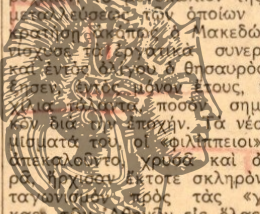 μεταλλεύσεις τῶν ὁποίων
κράτησῃ ἀκόπως ὁ Μακεδὼ
πίσχυσε τὰ ἐργατικὰ συνερ
καὶ ἐντὸς ὀλίγου ὁ θησαυρὸς
ξησεν, ἐντὸς μόνον ἔτους,
χίλια τάλαντα, ποσὸν σημ
κὸν διὰ τὴν ἐποχήν. Τὰ νέα
μίσματά του, οἱ «φιλίππειοι»
ἀπεκαλοῦντο, χρυσᾶ καὶ ἀ
ρᾶ ἤρχισαν ἔκτοτε σκληρὸν
ταγωνισμὸν πρὸς τὰς «γ